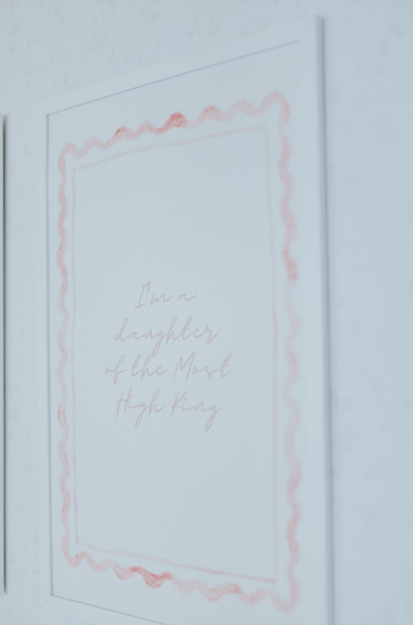 I'm a
daughter
of the Most
High King